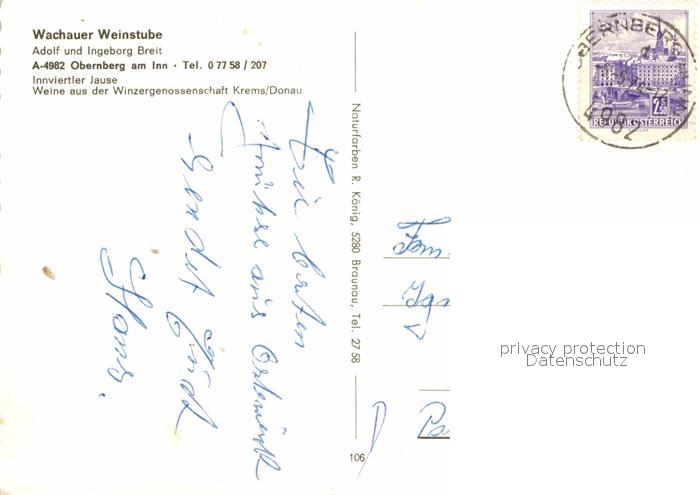 Wachauer Weinstube
Adolf und Ingeborg Breit
A-4982 Obernberg am Inn · Tel. 0 77 58 / 207
Innviertler Jause
Weine aus der Winzergenossenschaft Krems/Donau
OBERNBERG
4982
2.50
REPUBLIK ÖSTERREICH
Naturfarben R. König, 5280 Braunau, Tel. 27 58
106
Die besten
Grüße aus Österreich
sendet Euch
Hans.
Fam.
privacy protection
Datenschutz